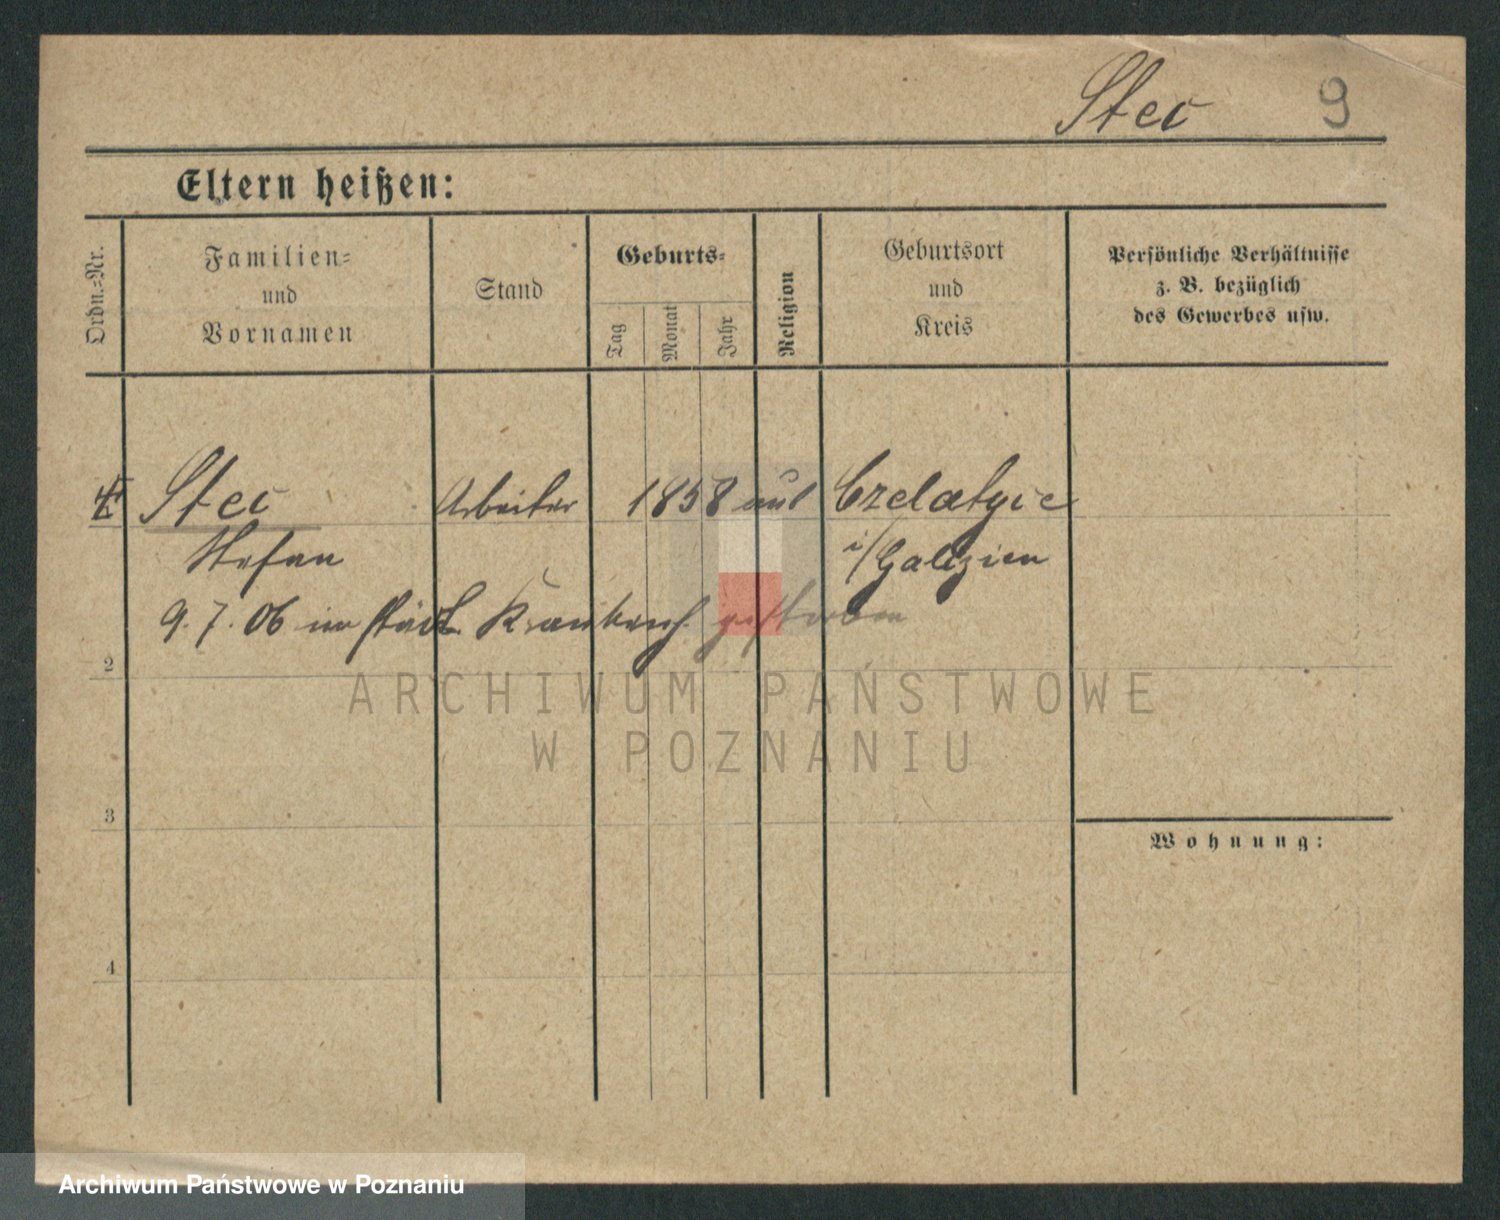 Stec 9
Eltern heißen:
Ordn.-Nr.
Familien-
und
Vornamen
Stand
Geburts-
Tag
Monat
Jahr
Religion
Geburtsort
und
Kreis
Persönliche Verhältnisse
z. B. bezüglich
des Gewerbes usw.
Stec Arbeiter 1858 aus Czelatyce
Stefan i/Galizien
9.7.06 im städt. Krankenh. gestorben
2
3
Wohnung:
4
ARCHIWUM PAŃSTWOWE
W POZNANIU
Archiwum Państwowe w Poznaniu